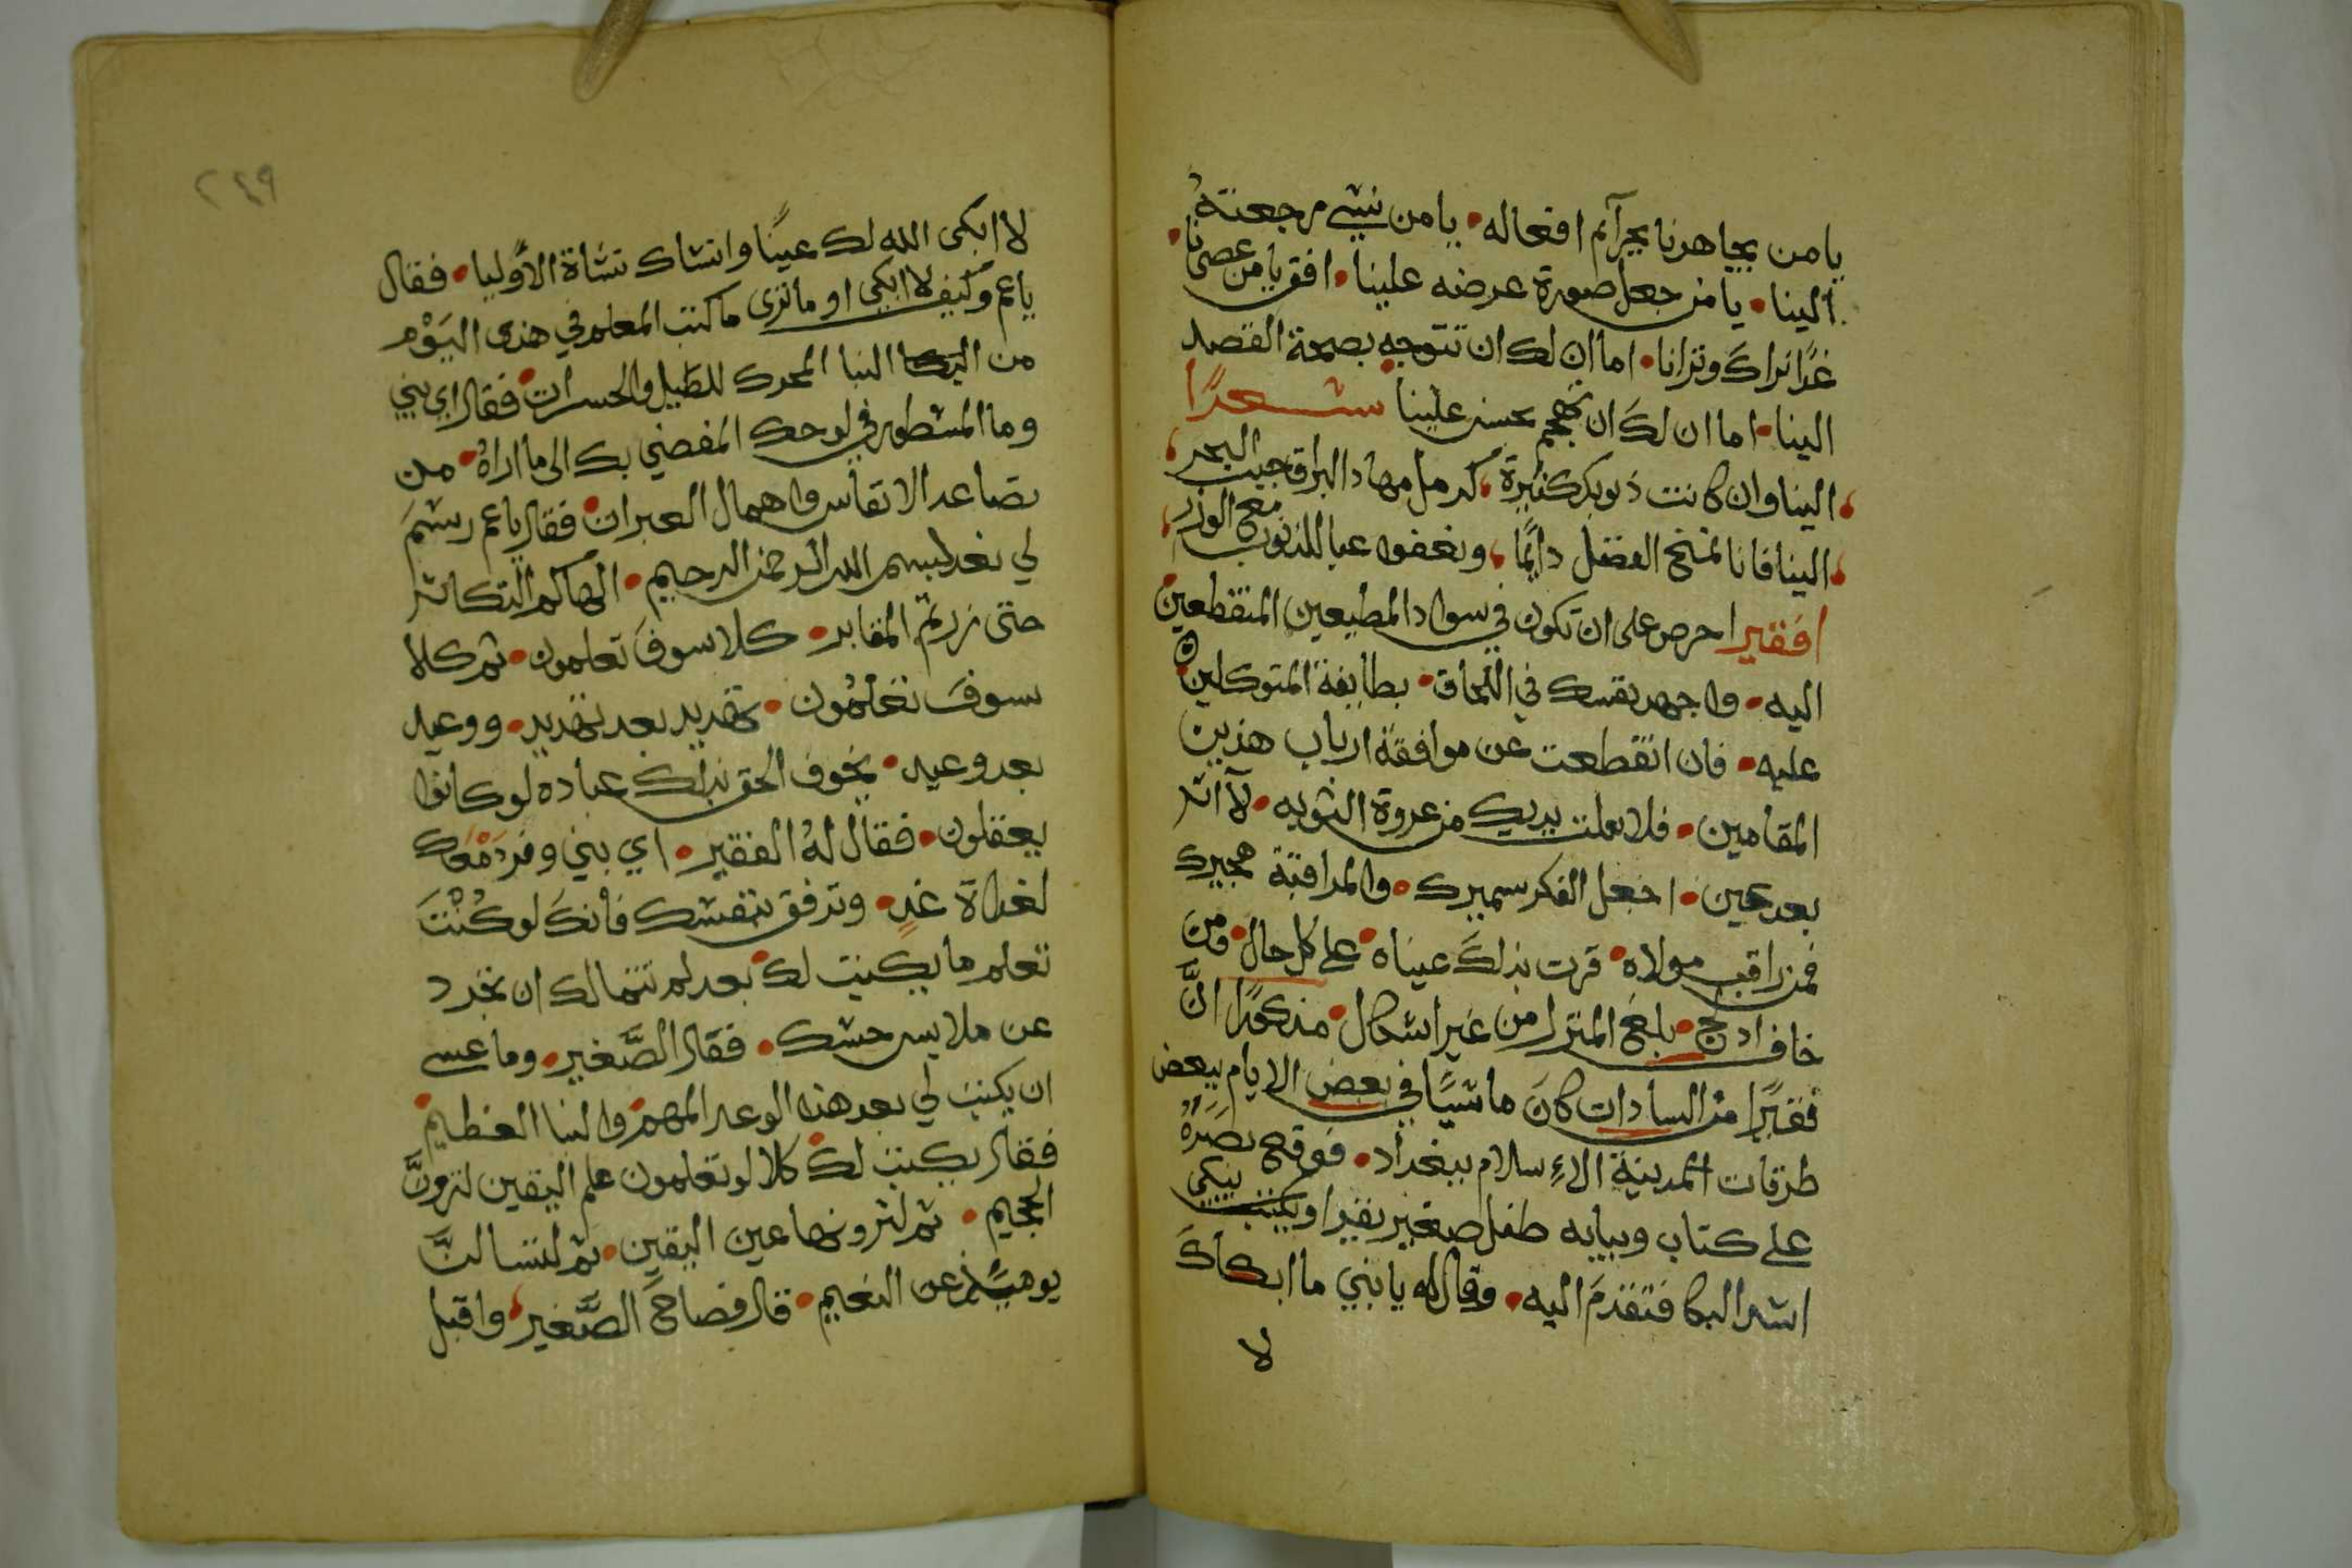 يا من يجاهرنا بجرآئم افعاله • يا من نسى مرجعته
الينا • يا من جعل صورة عرضه علينا • افق يا من عصانا •
غدًا نراك وترانا • اما ان لك ان تتوجه بصحة القصد
الينا • اما ان لك ان تهجم بحسن علينا شعرًا
الينا وان كانت ذنوبك كثيرة ، البحر ،
الينا فانا نمنح الفضل دائمًا ، ونعفوا عبا الذنوب مع الوزر ،
افقير احرص على ان تكون في سواد المطيعين المنقطعين
اليه • واجهد نفسك في اللحاق • بطايفة المتوكلين
عليه • فان انقطعت عن موافقة ارباب هذين
المقامين • فلا يفلت بيديك من عروة التوبه • لآ اثر
بعد عين • اجعل الفكر سميرك • والمراقبة هجيرك
فمن راقب مولاه • قرت بذلك عيناه • على كل حال • ومن
خاف ادلج • بلغ المنزل من غير اشكال • مذكورًا انَّ
فقيرًا من السادات كانَ ماشيًا في بعض الايام ببعض
طرقات المدينة الاءسلام ببغداد • فوقع بصرَهُ
على كتاب وببابه طفل صغير يقرا ويكتب يبكي
اشد البكا فتقدمَ اليه • وقال له يا بني ما ابكاكَ
لا
٢٤٩
لا ابكى الله لك عينًا وانشاك نشاة الأَوليا • فقال
ياعم وكيف لا ابكي او ما ترى ما كتب المعلم في هذى اليَوْم
من البكا النبا المحرك للطيل والحسرات • فقال اي بني
وما المسطور في لوحك المفضي بك الى ما اراهُ • من
تصاعد الانفاس واهمال العبران • فقال ياعم رسمَ
لي بعد بسم الله الرحمن الرحيم • الهاكم التكاثر
حتى زرتم المقابر • كلا سوفَ تعلمون • ثم كلا
سوفَ تعلمُون • تهديد بعد تهديد • ووعيد
بعد وعيد • يخوف الحق بذلك عباده لو كانوا
يعقلون • فقال لهُ الفقير • اي بني وفر دَمْعك
لغداة غدٍ • وترفق بنفسك فانكَ لو كُنْتَ
تعلم ما يكتب لك بعد لم تتمالك ان تجرد
عن ملابس حسك • فقال الصَّغير • وما عسى
ان يكتب لي بعد هذه الوعد المهم والنبا العظيم •
فقال يكتب لك • كلا لو تعلمون علم اليقين لترونَّ
الجحيم • ثم لترونها عين اليقين • ثم لتسالنَّ
يومئذ عن النعيم • قال فصاحَ الصَّغير • واقبل